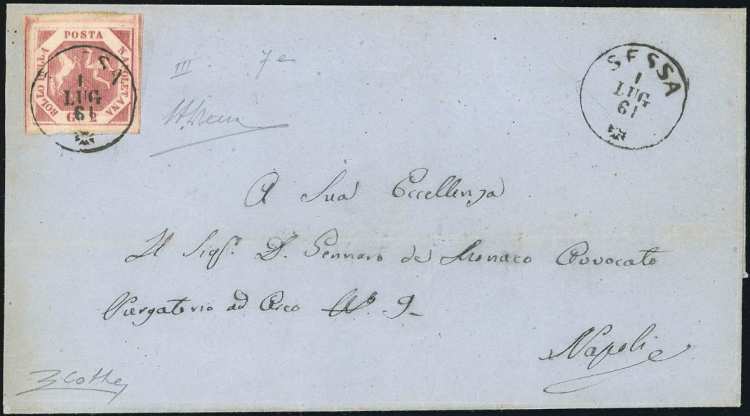 POSTA
NAPOLETANA
BOLLO DELLA
G 1
SSA
1
LUG
61
III 7e
SESSA
1
LUG
61
A Sua Eccellenza
Il Sigr. D. Gennaro de Monaco Avvocato
Purgatorio ad Arco N° 9
Napoli